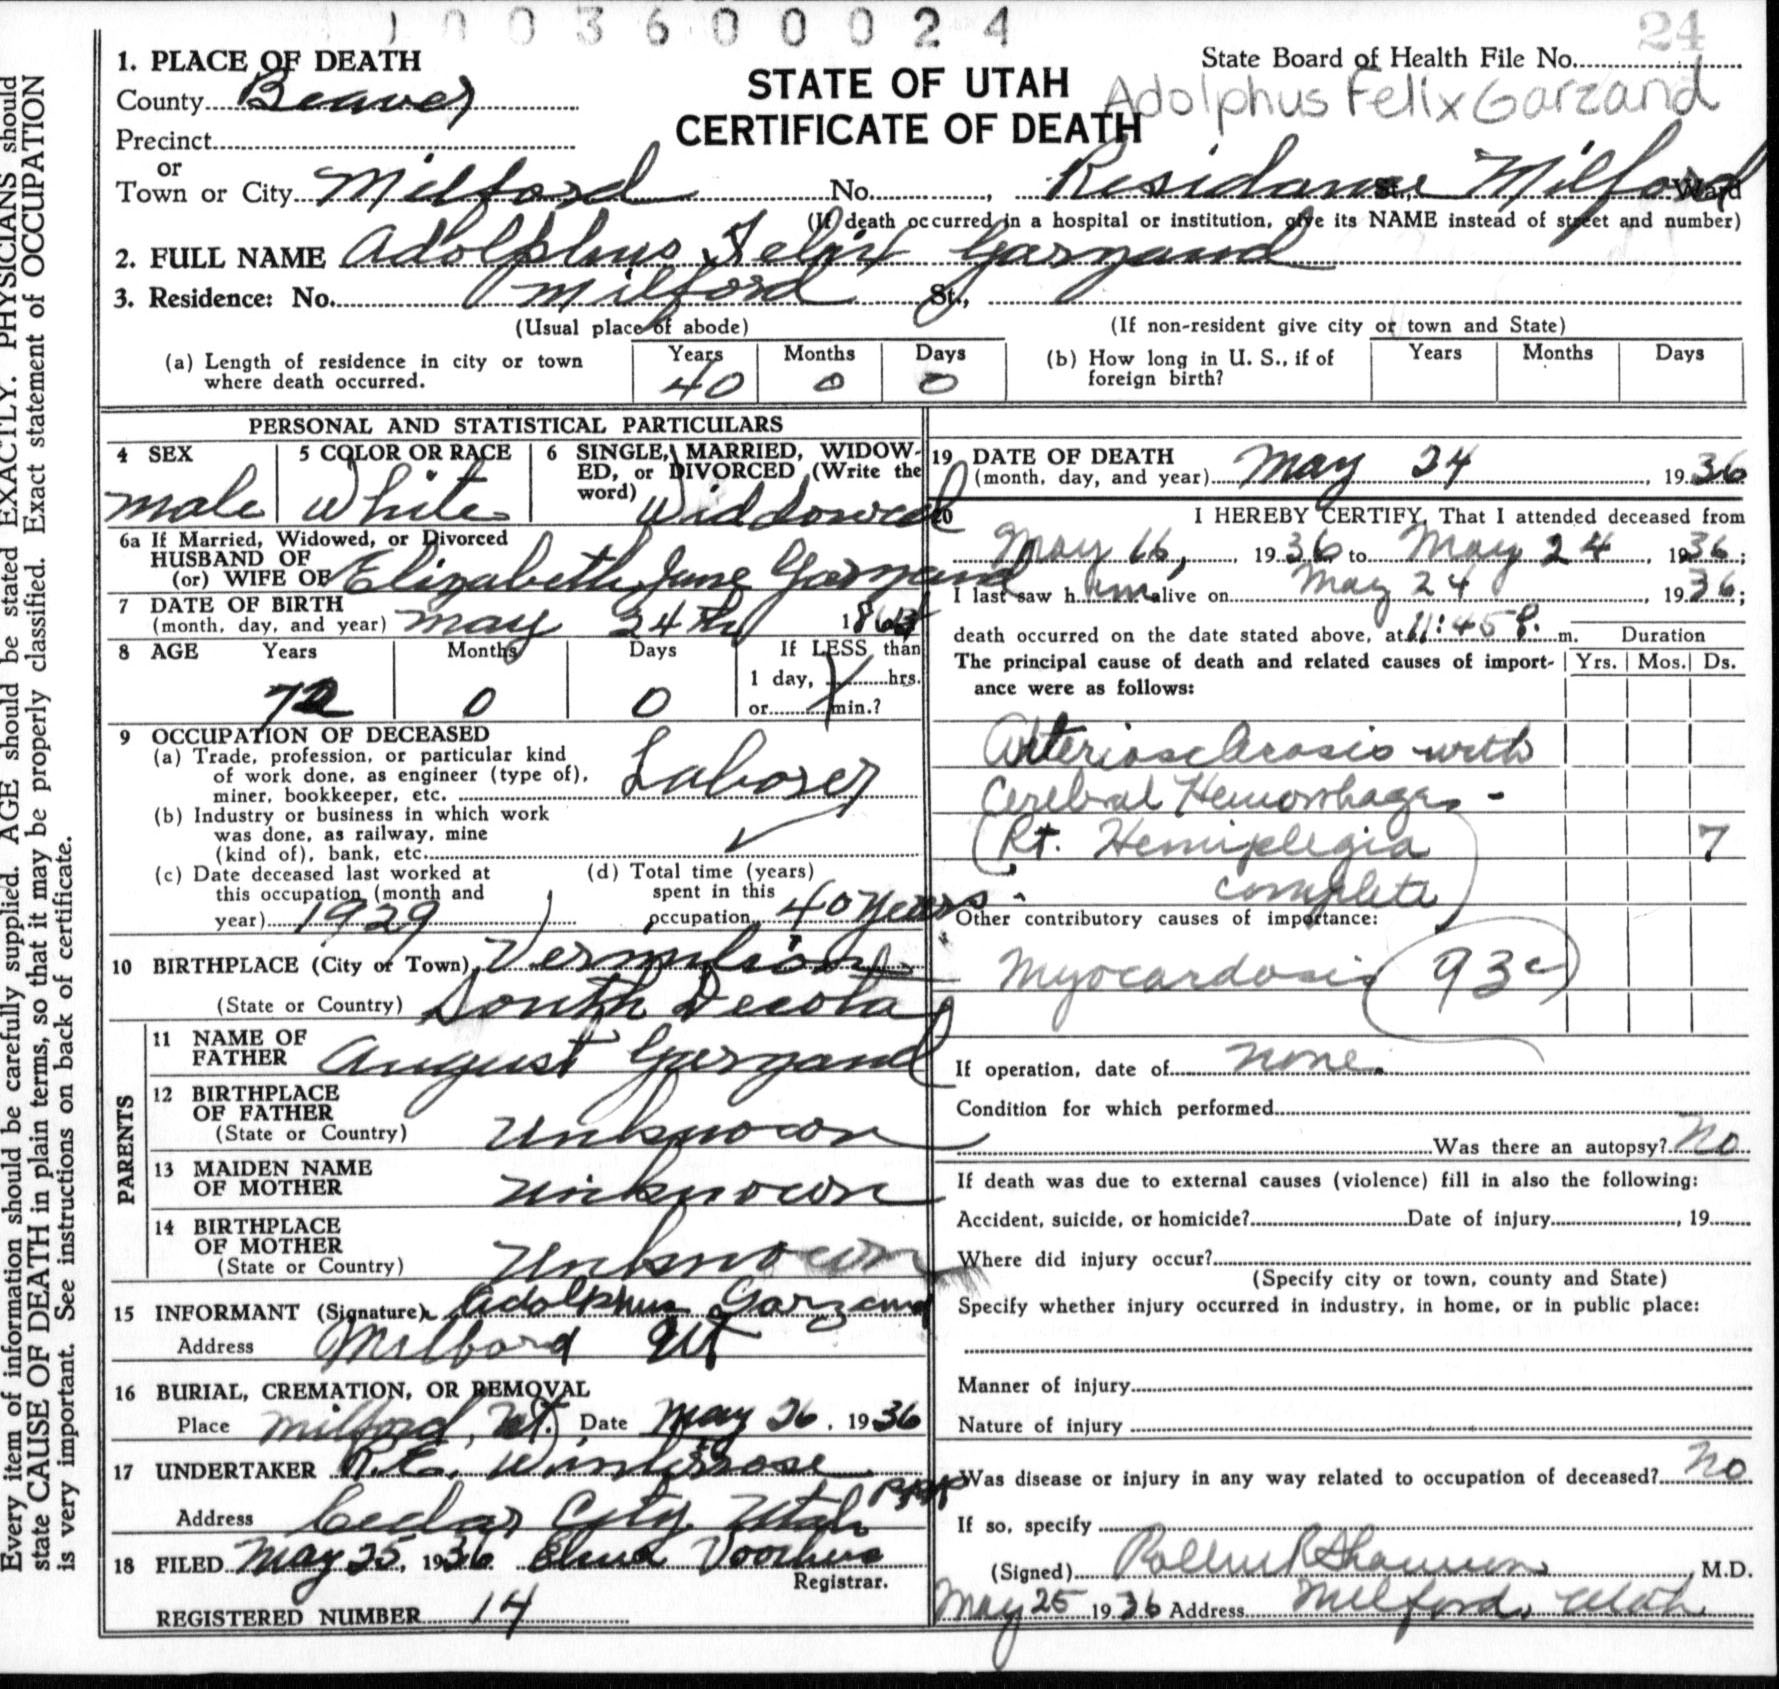 003600024
24
1. PLACE OF DEATH
State Board of Health File No.
County Beaver
STATE OF UTAH
Adolphus Felix Garzand
CERTIFICATE OF DEATH
Precinct
or
Town or City Milford No. , Residance St., Milford Ward
(If death occurred in a hospital or institution, give its NAME instead of street and number)
2. FULL NAME Adolphus Felix Garzand
3. Residence: No. Milford St.,
(Usual place of abode) (If non-resident give city or town and State)
(a) Length of residence in city or town where death occurred. Years 40 Months 0 Days 0
(b) How long in U. S., if of foreign birth? Years Months Days
PERSONAL AND STATISTICAL PARTICULARS
4 SEX male
5 COLOR OR RACE White
6 SINGLE, MARRIED, WIDOWED, or DIVORCED (Write the word) Widdowed
6a If Married, Widowed, or Divorced
HUSBAND OF
(or) WIFE OF Elizabeth Jane Garzand
7 DATE OF BIRTH
(month, day, and year) May 24th
8 AGE Years 72 Months 0 Days 0
If LESS than
1 day, hrs.
or min.?
9 OCCUPATION OF DECEASED
(a) Trade, profession, or particular kind
of work done, as engineer (type of),
miner, bookkeeper, etc. Laborer
(b) Industry or business in which work
was done, as railway, mine
(kind of), bank, etc.
(c) Date deceased last worked at
this occupation (month and
year) 1929
(d) Total time (years)
spent in this
occupation 40 years
10 BIRTHPLACE (City or Town) Vermilion
(State or Country) South Decota
PARENTS
11 NAME OF
FATHER August Garzand
12 BIRTHPLACE
OF FATHER
(State or Country) Unknown
13 MAIDEN NAME
OF MOTHER Unknown
14 BIRTHPLACE
OF MOTHER
(State or Country) Unknown
15 INFORMANT (Signature) Adolphus Garzand
Address Milford Ut
16 BURIAL, CREMATION, OR REMOVAL
Place Milford, Ut. Date May 26, 1936
17 UNDERTAKER R.E. Winterrose
Address Cedar City Utah
18 FILED May 25, 1936 Voorhees
Registrar.
REGISTERED NUMBER 14
19 DATE OF DEATH
(month, day, and year) May 24, 1936
20 I HEREBY CERTIFY, That I attended deceased from
May 16, 1936 to May 24, 1936;
I last saw him alive on May 24, 1936;
death occurred on the date stated above, at 11:45 P. m. Duration
The principal cause of death and related causes of import- Yrs. Mos. Ds.
ance were as follows:
Arteriosclerosis with
Cerebral Hemorrhage -
(Rt. Hemiplegia 7
complete)
Other contributory causes of importance:
Myocardosis 93c
If operation, date of none.
Condition for which performed
Was there an autopsy? No
If death was due to external causes (violence) fill in also the following:
Accident, suicide, or homicide? Date of injury , 19
Where did injury occur?
(Specify city or town, county and State)
Specify whether injury occurred in industry, in home, or in public place:
Manner of injury
Nature of injury
Was disease or injury in any way related to occupation of deceased? No
If so, specify
(Signed) , M.D.
May 25 1936 Address Milford, Utah
Every item of information should be carefully supplied. AGE should be stated EXACTLY. PHYSICIANS should
state CAUSE OF DEATH in plain terms, so that it may be properly classified. Exact statement of OCCUPATION
is very important. See instructions on back of certificate.